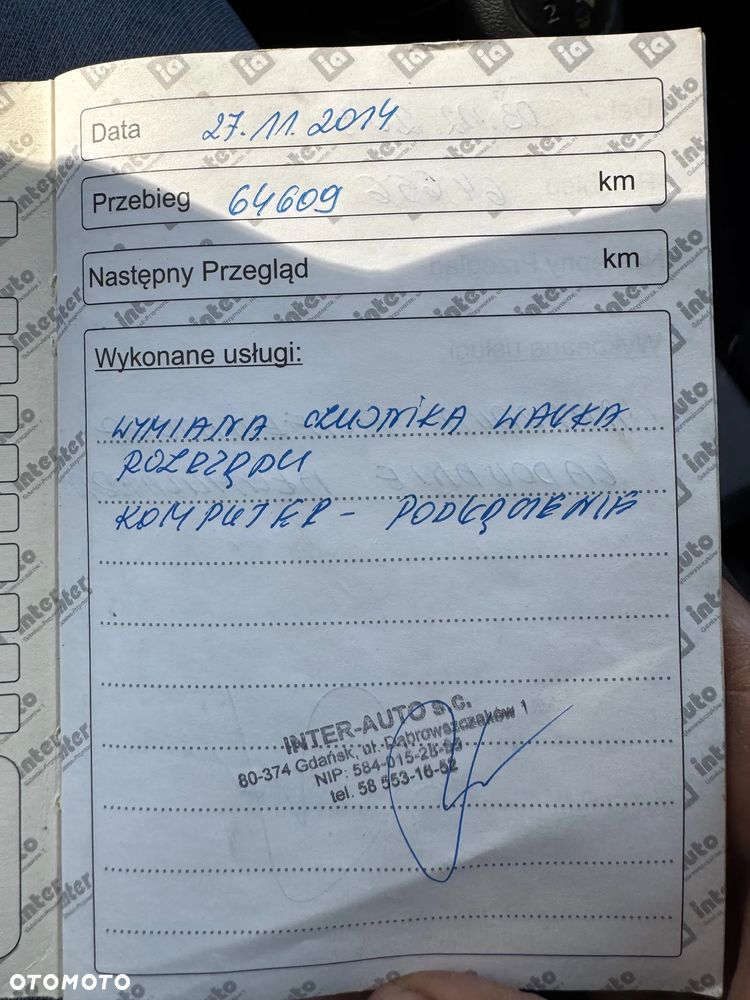 Data 27.11.2014
Przebieg 64609 km
Następny Przegląd km
Wykonane usługi:
WYMIANA CZUJNIKA WAŁKA
ROZRZĄDU
KOMPUTER - PODŁĄCZENIE
INTER-AUTO s.c.
80-374 Gdańsk, ul. Dąbrowszczaków 1
NIP: 584-015-28-
tel. 58 553-16-52
OTOMOTO